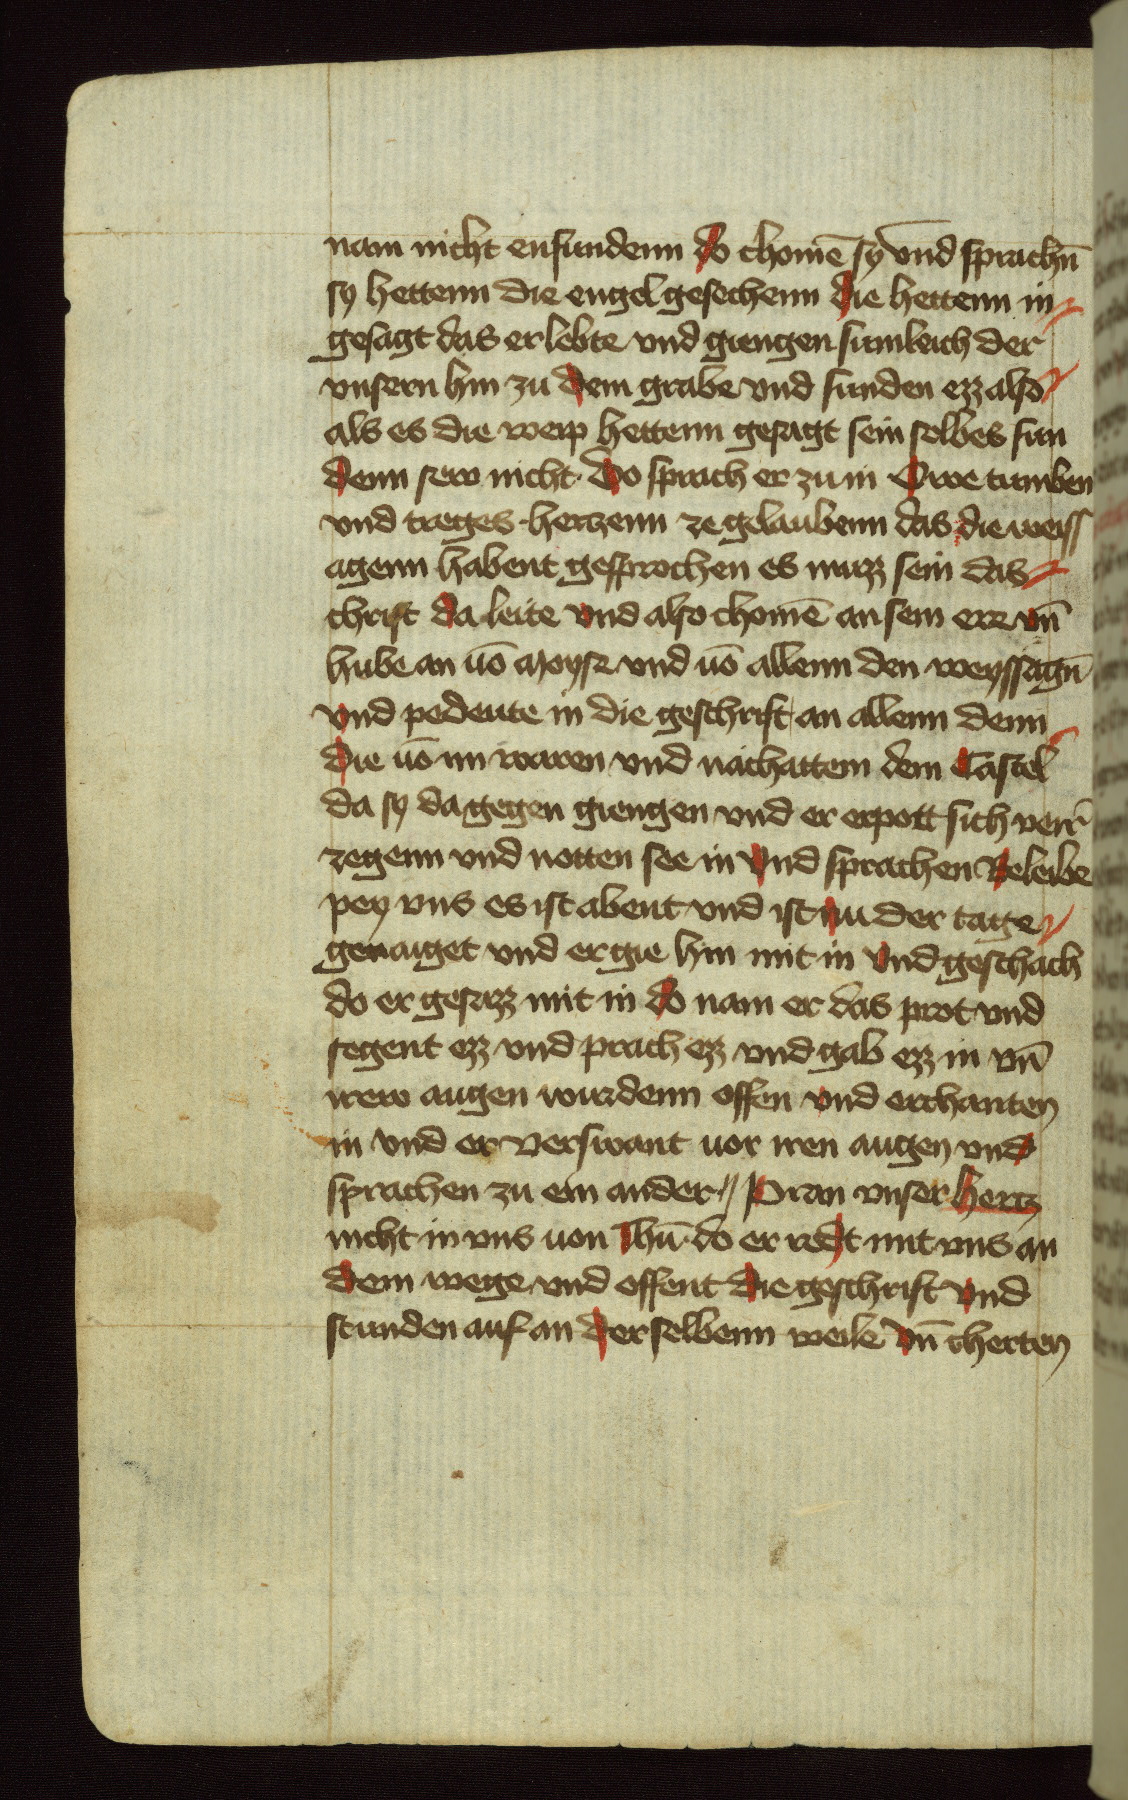 nam nicht enfundenn do chomē sy vnd sprachn̄
sy hettenn die engel gesechenn die hettenn in
gesagt das er lebte vnd giengen sumleich der
vnsern hin zu dem grabe vnd funden ezz also
als es die weip hettenn gesagt sein selbes fun
denn sew nicht · Do sprach er zu in Owe tumben
vnd treges herzenn ze gelaubenn das die weiss
agenn habent gesprochen es muzz sein das
christ da leite vnd also chomē an sein ere vn̄
hube an uō Moyse vnd uō allenn den weyssagn̄
vnd pedeute in die geschrift an allenn denn
die uō im waren vnd nachattem dem Castel
da sy da gegen giengen vnd er erpott sich verr̄
zegenn vnd notten see in vnd sprachen Beleibe
pey vns es ist abent vnd ist nu der tage
genaiget vnd er gie hin mit in vnd geschach
do er gesazz mit in do nam er das prot vnd
segent ezz vnd prach ezz vnd gab ezz in vn̄
irew augen wurdenn offen vnd erchanten
in vnd er verswant uor iren augen vnd
sprachen zu ein ander // Pran vnser hertz
nicht in vns von Ihū · do er redt mit vns an
dem wege vnd offent die geschrift vnd
stunden auf an der selbenn weile vn̄ cherten